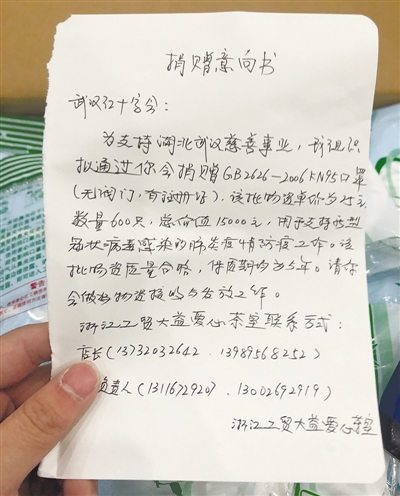 捐赠意向书
武汉红十字会:
为支持湖北武汉慈善事业,我组织
拟通过你会捐赠GB2626-2006KN95口罩
(无阀门,有注册证),该批物资单价为25元
数量600只,总价值15000元,用于支持新型
冠状病毒感染的肺炎疫情防疫工作。该
批物资质量合格,保质期均为5年。请你
会做好物资接收与发放工作。
浙江工贸大益爱心茶室联系方式:
店长(13732032642.13989568252)
负责人(1311672920).13002692919)
浙江工贸大益爱心茶室
警告